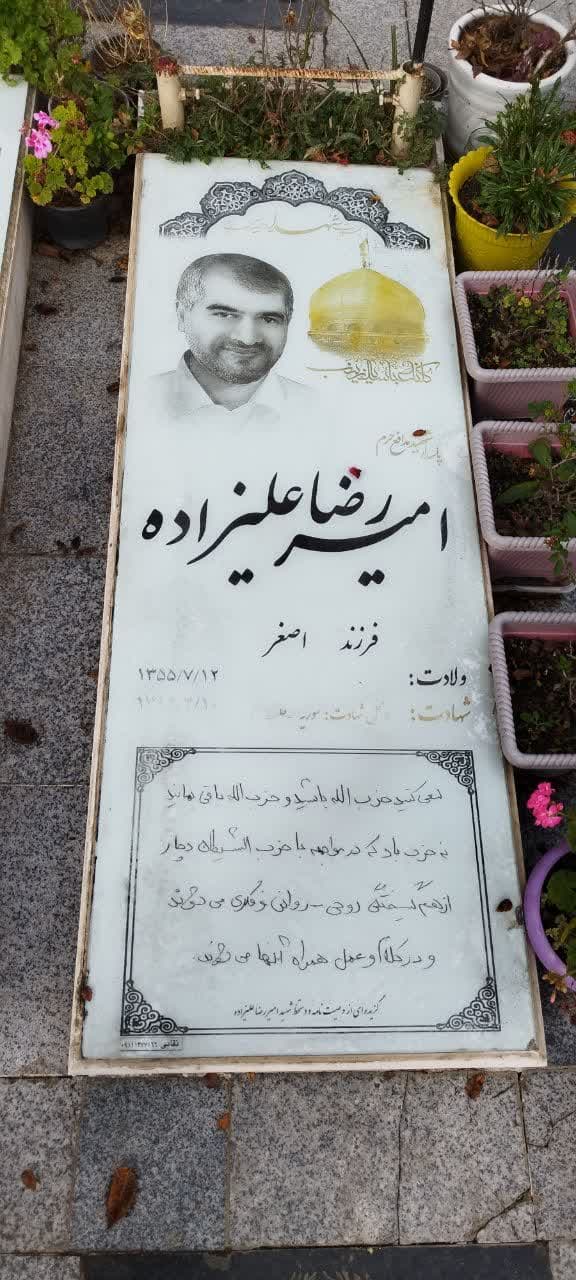 کلنا عباسک یا زینب
پاسدار شهید مدافع حرم
امیررضا علیزاده
فرزند اصغر
ولادت: ۱۳۵۵/۷/۱۲
شهادت: محل شهادت: سوریه - حلب
سعی کنید حزب الله باشید و حزب الله باقی بمانید
نه حزب باد که در مواجهه با حزب الشیطان دچار
از هم گسیختگی روحی - روانی و فکری می شوند
و در کلام و عمل همراه آنها می شوند.
گزیده‌ای از وصیت نامه و دستخط شهید امیررضا علیزاده